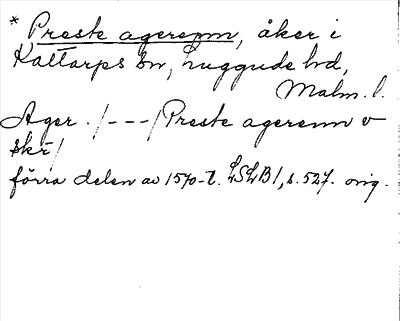 * Preste agerenn, åker i
Kattarps sn, Luggude hd,
Malm. l.
Ager ./---/ Preste agerenn v
skr /
förra delen av 1570-t. LSLB I, s. 527. orig.